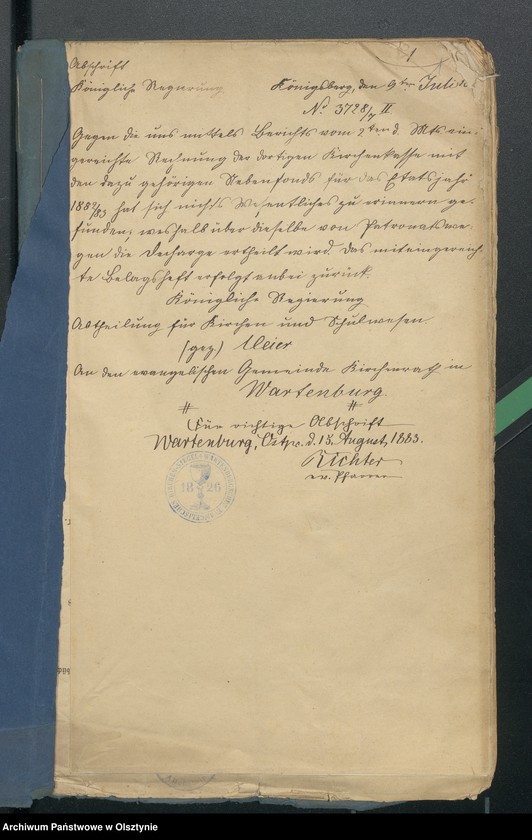 1
Abschrift
Königliche Regierung Königsberg, den 9ten Juli
No 3728/7 II
Gegen die uns mittels Berichts vom 2ten d. Mts ein-
gereichte Rechnung der dortigen Kirchenkasse mit
den dazu gehörigen Nebenfonds für das Etatsjahr
1882/83 hat sich nichts Wesentliches zu erinnern ge-
funden, weshalb über dieselbe von Patronatswe-
gen die Decharge ertheilt wird. Das miteingereich-
te Belagsheft erfolgt anbei zurück.
Königliche Regierung
Abtheilung für Kirchen und Schulwesen.
(gez) Meier
An den evangelischen Gemeinde Kirchenrath in
Wartenburg.
Für richtige Abschrift
Wartenburg, Ostpr. d. 15. August, 1883.
Richter
ev. Pfarrer
1826
Archiwum Państwowe w Olsztynie